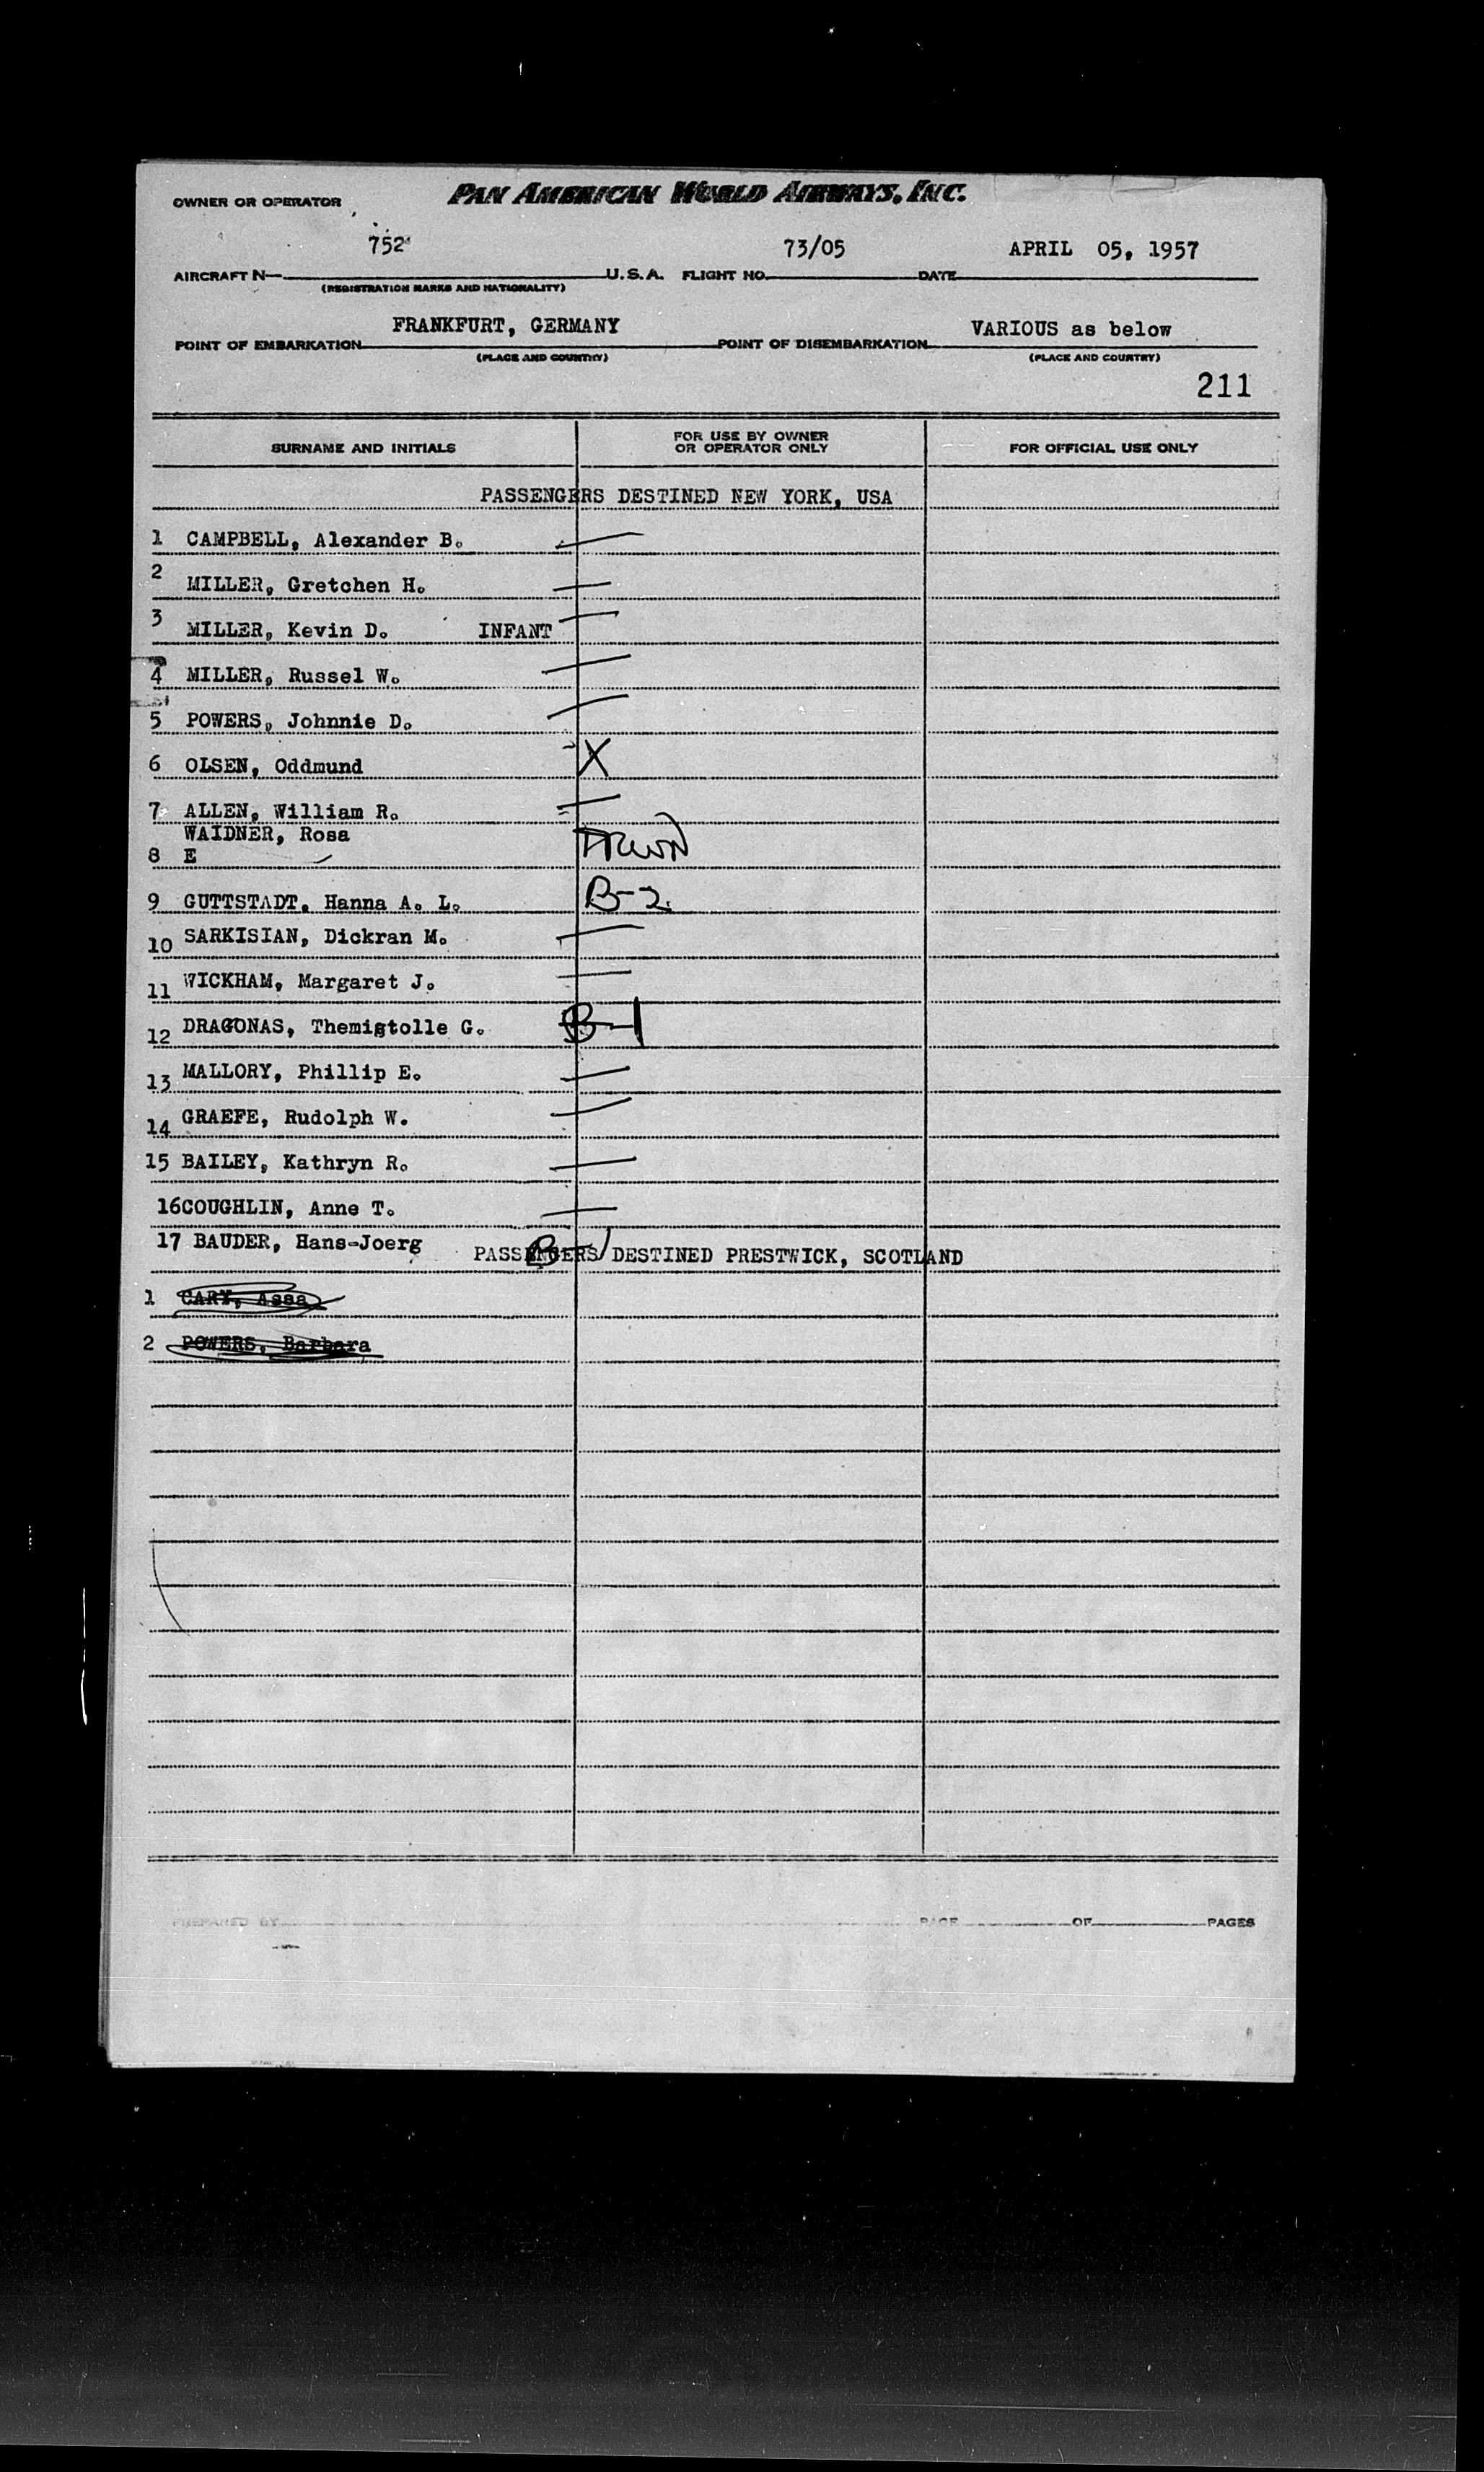 OWNER OR OPERATOR PAN AMERICAN WORLD AIRWAYS, INC.
752 73/05 APRIL 05, 1957
AIRCRAFT N— U.S.A. FLIGHT NO. DATE
(REGISTRATION MARKS AND NATIONALITY)
FRANKFURT, GERMANY VARIOUS as below
POINT OF EMBARKATION POINT OF DISEMBARKATION
(PLACE AND COUNTRY) (PLACE AND COUNTRY)
211
SURNAME AND INITIALS FOR USE BY OWNER OR OPERATOR ONLY FOR OFFICIAL USE ONLY
PASSENGERS DESTINED NEW YORK, USA
1 CAMPBELL, Alexander B.
2 MILLER, Gretchen H.
3 MILLER, Kevin D. INFANT
4 MILLER, Russel W.
5 POWERS, Johnnie D.
6 OLSEN, Oddmund X
7 ALLEN, William R.
WAIDNER, Rosa
8 E
9 GUTTSTADT, Hanna A. L. B-2
10 SARKISIAN, Dickran M.
11 WICKHAM, Margaret J.
12 DRAGONAS, Themigtolle G. B-1
13 MALLORY, Phillip E.
14 GRAEFE, Rudolph W.
15 BAILEY, Kathryn R.
16 COUGHLIN, Anne T.
17 BAUDER, Hans-Joerg B-1
PASSENGERS DESTINED PRESTWICK, SCOTLAND
1 CARY, Assa
2 POWERS, Barbara
PREPARED BY PAGE OF PAGES